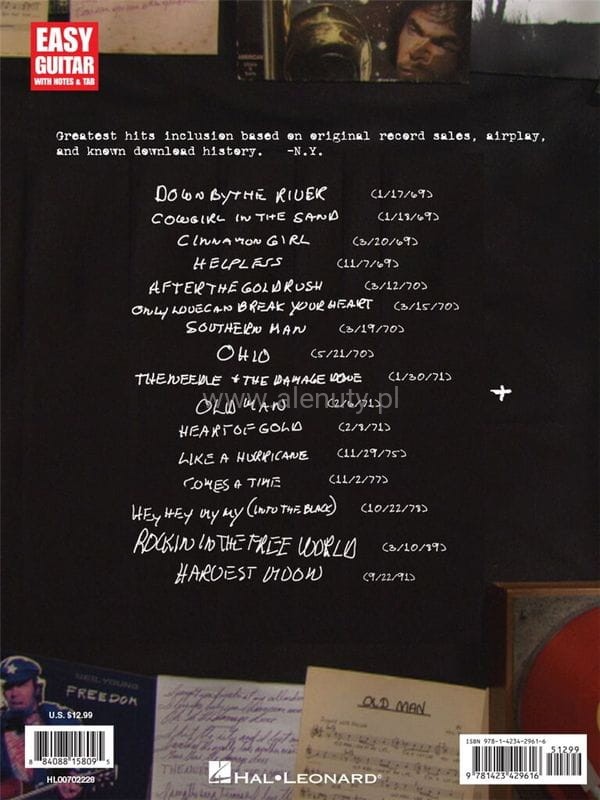 EASY
GUITAR
WITH NOTES & TAB
Greatest hits inclusion based on original record sales, airplay,
and known download history. -N.Y.
DOWN BY THE RIVER (1/17/69)
COWGIRL IN THE SAND (1/18/69)
CINNAMON GIRL (3/20/69)
HELPLESS (11/7/69)
AFTER THE GOLDRUSH (3/12/70)
ONLY LOVE CAN BREAK YOUR HEART (3/15/70)
SOUTHERN MAN (3/19/70)
OHIO (5/21/70)
THE NEEDLE + THE DAMAGE DONE (1/30/71)
www.alenuty.pl
OLD MAN (2/6/71)
HEART OF GOLD (2/8/71)
LIKE A HURRICANE (11/29/75)
COMES A TIME (11/2/77)
HEY HEY MY MY (INTO THE BLACK) (10/22/78)
ROCKIN IN THE FREE WORLD (3/10/89)
HARVEST MOON (9/22/91)
NEIL YOUNG
FREEDOM
OLD MAN
U.S. $12.99
8 84088 15809 5
HL00702229
HAL•LEONARD®
ISBN 978-1-4234-2961-6
51299
9 781423 429616